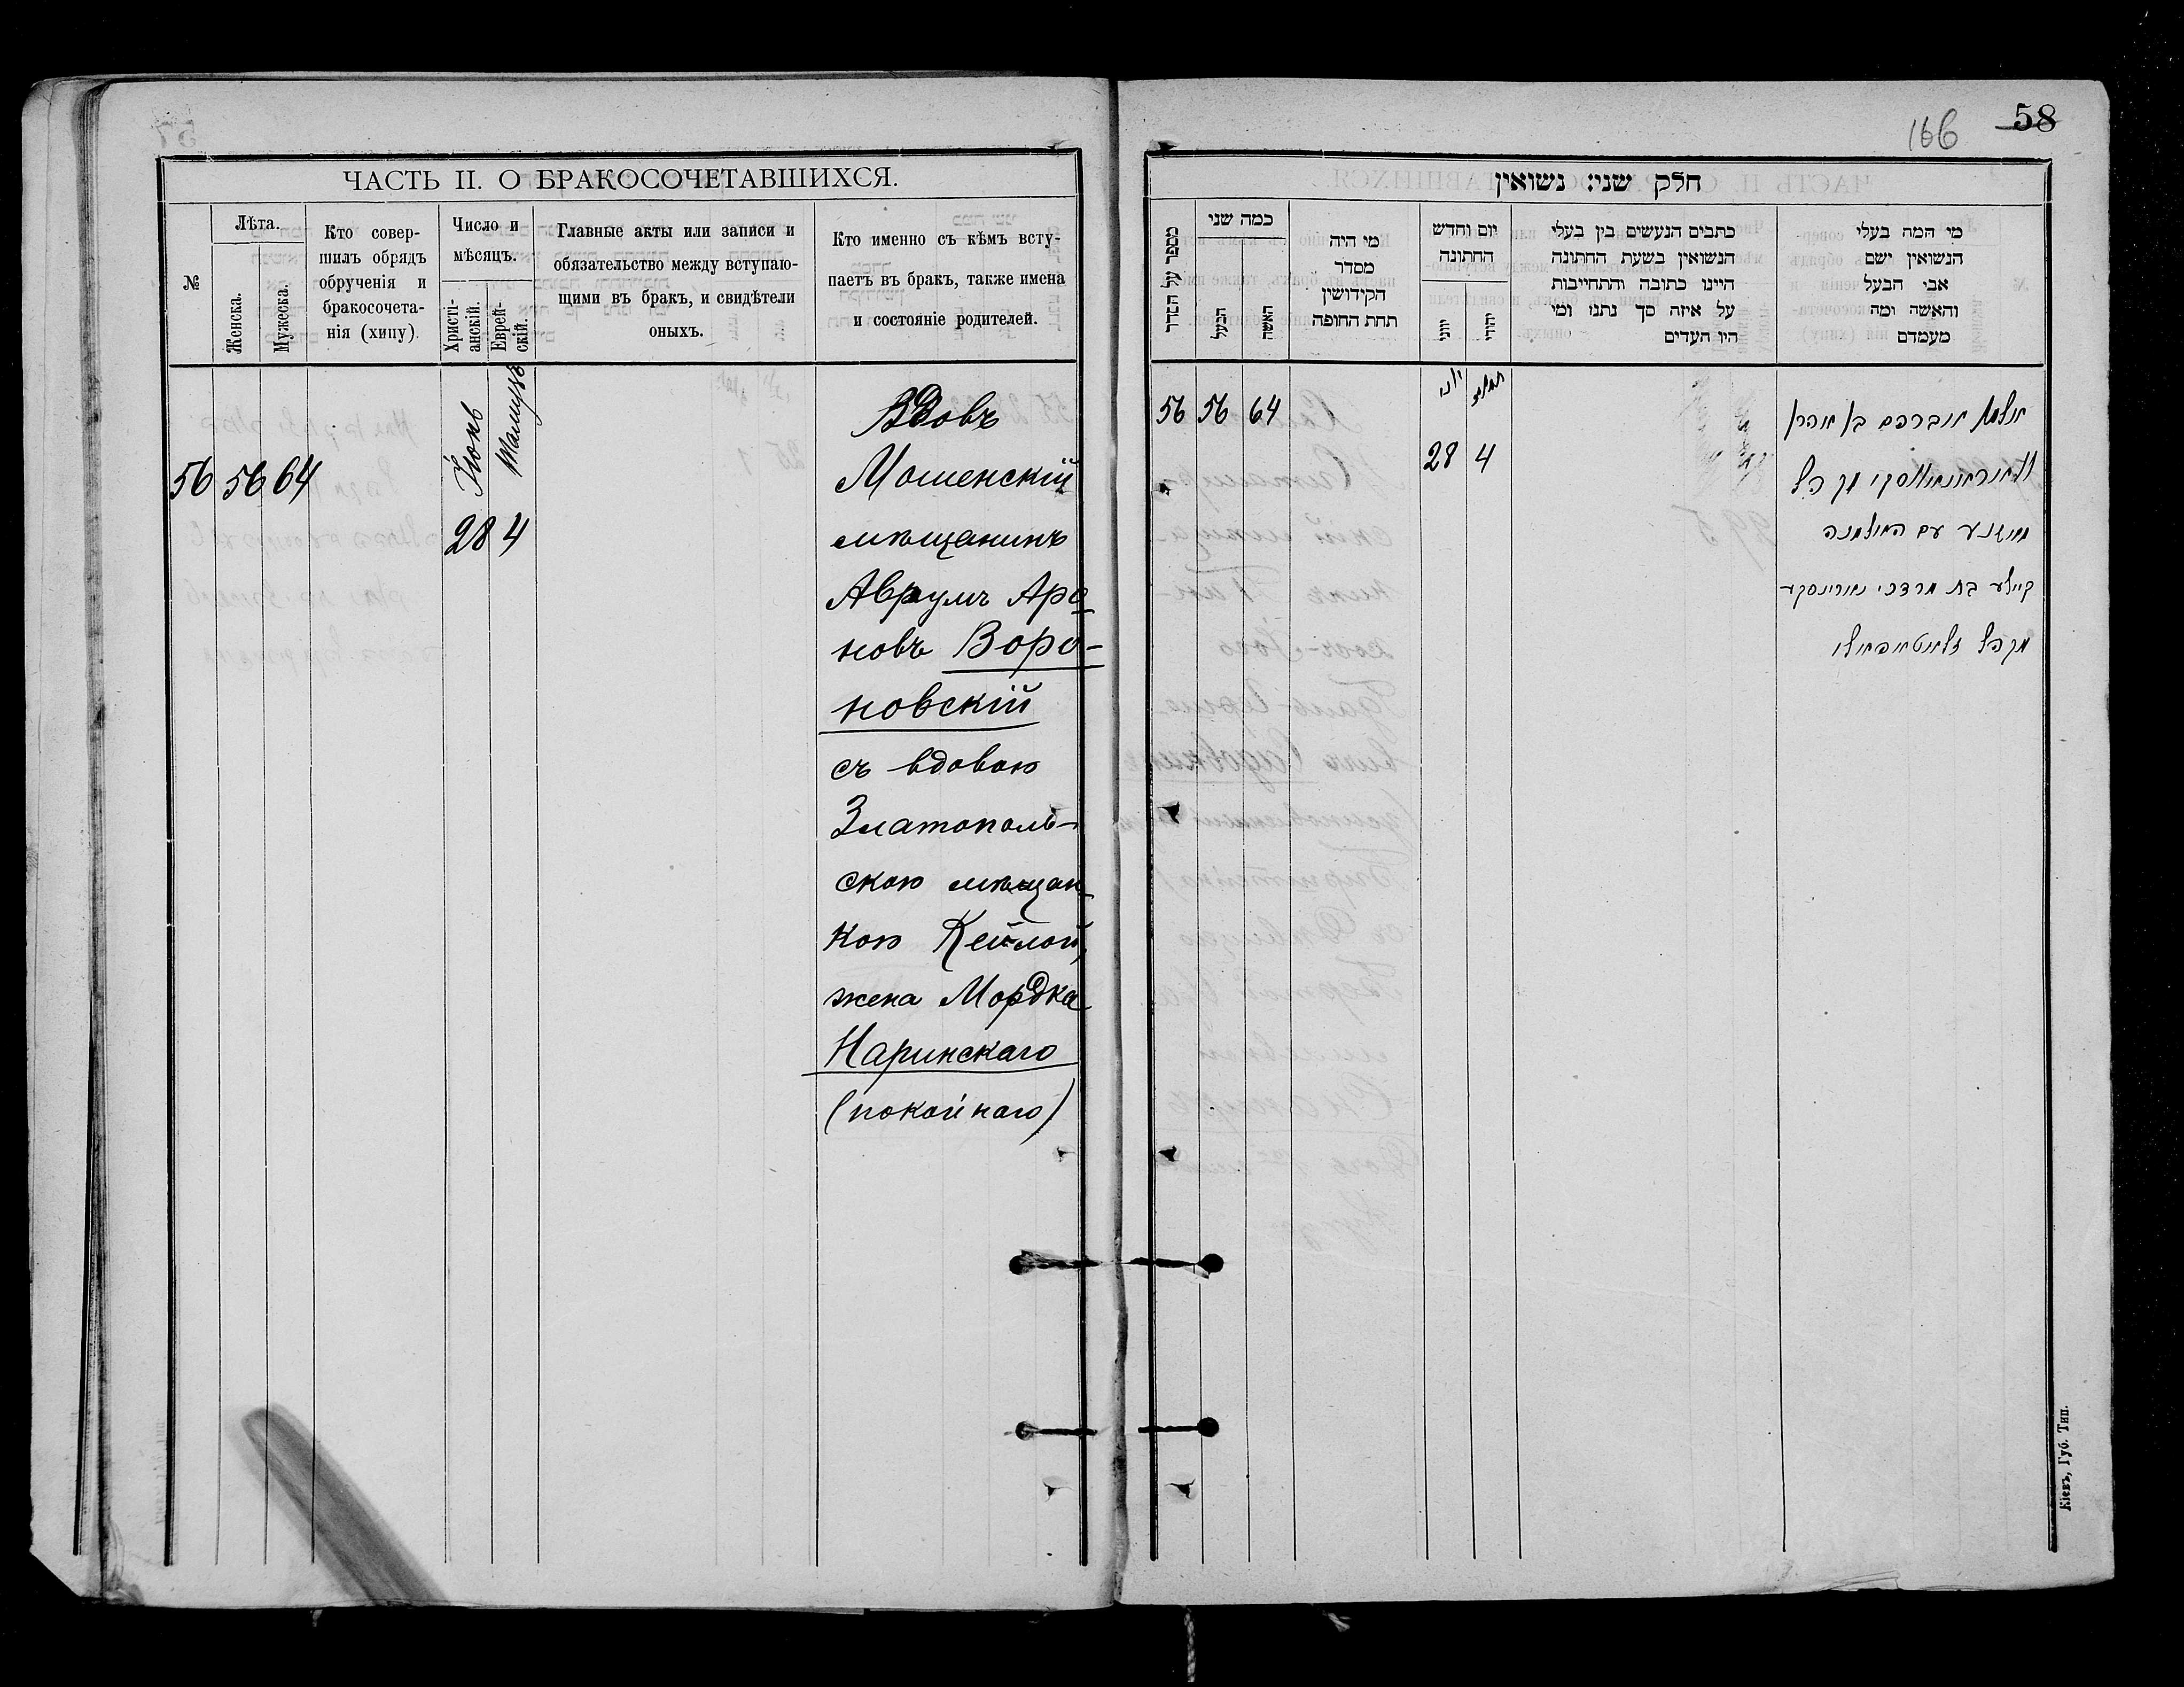 ЧАСТЬ II. О БРАКОСОЧЕТАВШИХСЯ.
№
Лѣта.
Женска.
Мужеска.
Кто совер-
шилъ обрядъ
обрученія и
бракосочета-
нія (хипу)
Число и
мѣсяцъ.
Христі-
анскій.
Еврей-
скій.
Главные акты или записи и
обязательство между вступаю-
щими въ бракъ, и свидѣтели
оныхъ.
Кто именно съ кѣмъ всту-
паетъ въ бракъ, также имена
и состояніе родителей.
56 56 64
Іюнь
28 4
Вдовъ
Мошенскій
мѣщанинъ
Аврумъ Аро
новъ Воро-
новскій
съ вдовою
Златополь-
скою мѣщан
кою Кейлой,
жена Мордка
Наринскаго
(покойнаго)
166 58
חלק שני: נשואין
מספר על הסדר
כמה שני
הבעל
האשה
מי היה
מסדר
הקידושין
תחת החופה
יום וחדש
החתונה
יוני
יהודי
כתבים הנעשים בין בעלי
הנשואין בשעת החתונה
היינו כתובה והתחייבות
על איזה סך נתנו ומי
היו העדים
מי המה בעלי
הנשואין ושם
אבי הבעל
והאשה ומה
מעמדם
56 56 64
יוני תמוז
28 4
אלמן אברהם בן אהרן
מק הל
עם האלמנה
קיילע בת מרדכי נארינסקע
מקהל זלאטאפאלי
Кіевъ, Губ. Тип.